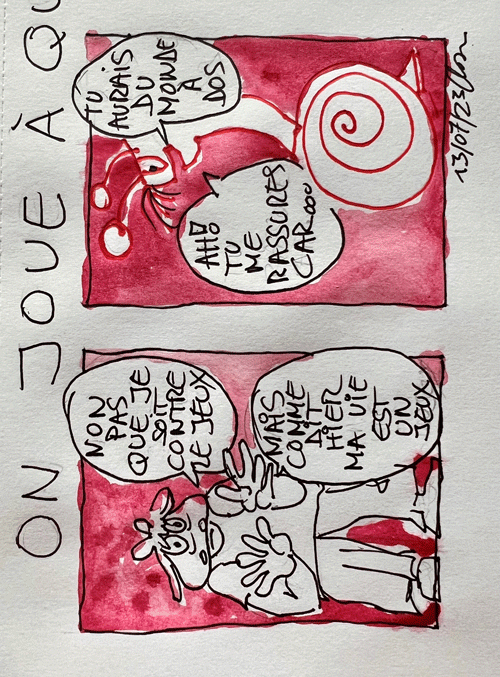 ON JOUE À QU
NON
PAS
QUE JE
SOIT
CONTRE
LE JEUX
MAIS
COMME
DIT
HIER
MA VIE
EST
UN
JEUX
TU
AURAIS
DU
MONDE
À
DOS
AH!
TU
ME
RASSURES
CAR...
13/07/23